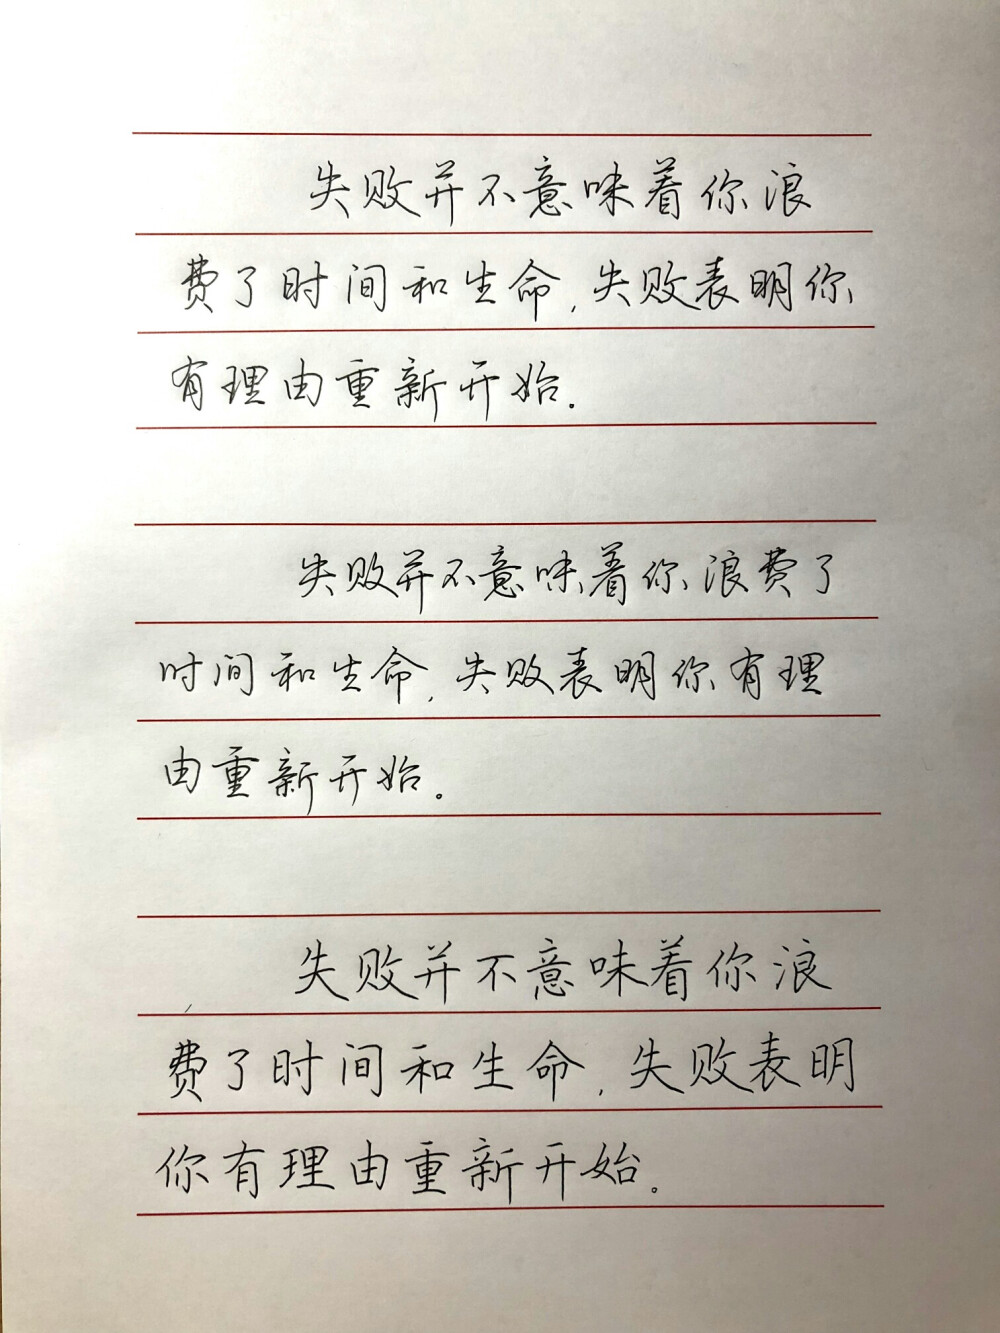 失败并不意味着你浪
费了时间和生命,失败表明你
有理由重新开始.
失败并不意味着你浪费了
时间和生命,失败表明你有理
由重新开始。
失败并不意味着你浪
费了时间和生命,失败表明
你有理由重新开始。